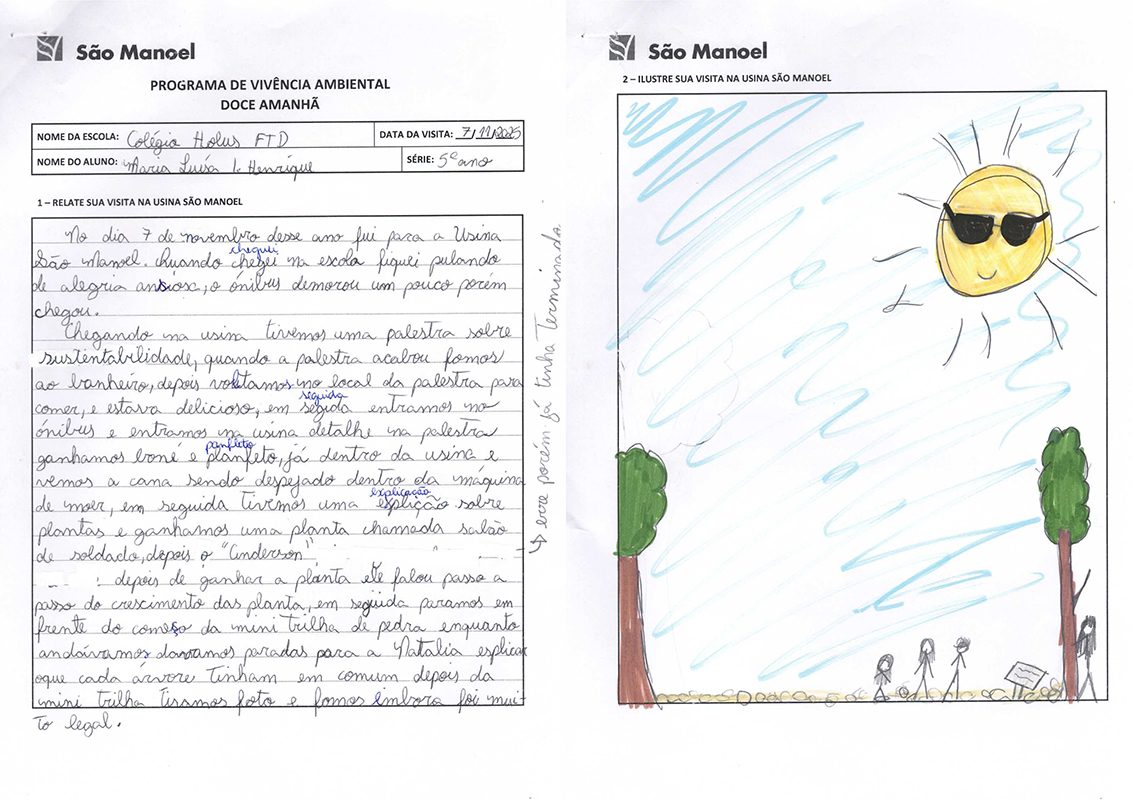 São Manoel
PROGRAMA DE VIVÊNCIA AMBIENTAL
DOCE AMANHÃ
NOME DA ESCOLA: Colégio Holus FTD
DATA DA VISITA: 7/11/2025
NOME DO ALUNO: Maria Luísa L. Henrique
SÉRIE: 5º ano
1 – RELATE SUA VISITA NA USINA SÃO MANOEL
No dia 7 de novembro desse ano fui para a Usina
cheguei
São Manoel. Quando chegei na escola fiquei pulando
de alegria ansiosa, o ónibus demorou um pouco porém
chegou.
Chegando na usina tivemos uma palestra sobre
sustentabilidade, quando a palestra acabou fomos
ao banheiro, depois voltamos no local da palestra para
siguida
comer, e estava delicioso, em segida entramos no
ónibus e entramos na usina detalhe na palestra
panfleto
ganhamos boné e planfeto, já dentro da usina e
vemos a cana sendo despejado dentro da máquina
explicação
de moer, em seguida tivemos uma explição sobre
plantas e ganhamos uma planta chamada sabão
de soldado, depois o "Anderson"
depois de ganhar a planta ele falou passo a
passo do crescimento das planta, em seguida paramos em
frente do começo da mini trilha de pedra enquanto
andávamos davamos paradas para a Natalia explicar
oque cada árvore tinham em comum depois da
mini trilha tiramos foto e fomos embora foi mui-
to legal.
→ erre porém já tinha Terminado.
São Manoel
2 – ILUSTRE SUA VISITA NA USINA SÃO MANOEL